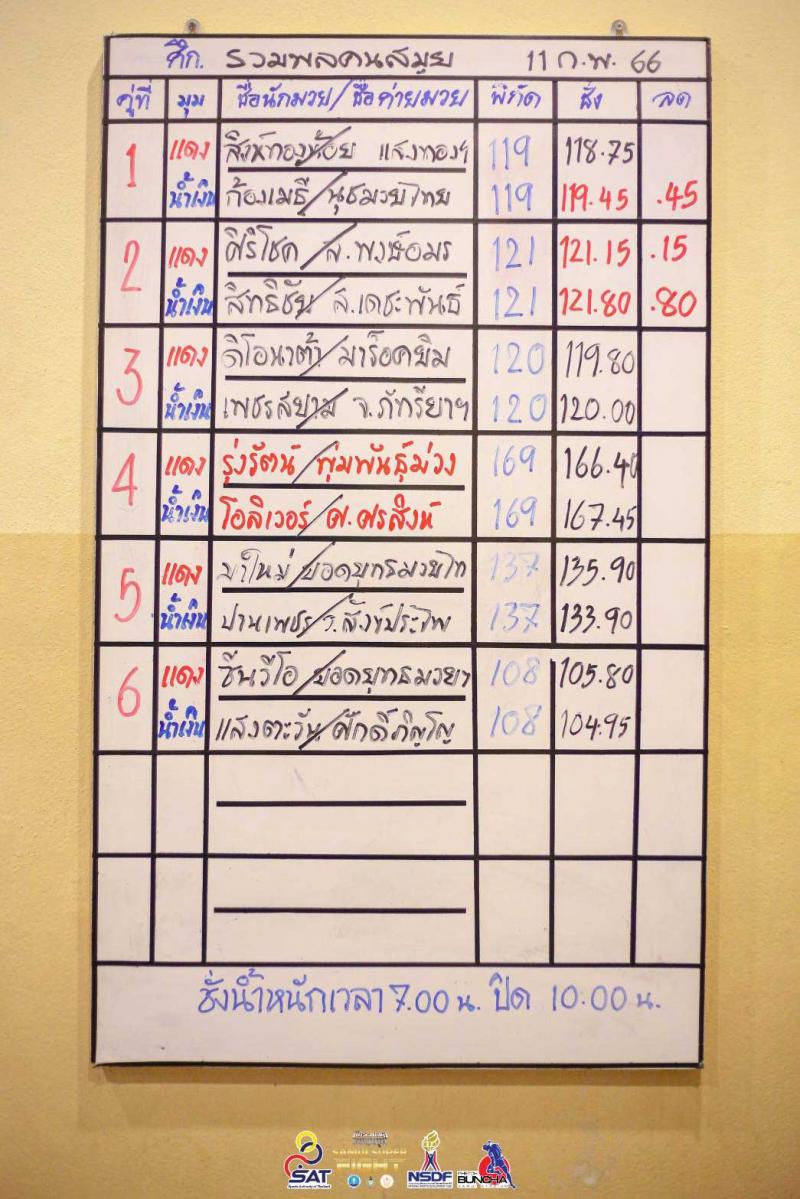 ศึก. รวมพลคนสมุย 11 ก.พ. 66
คู่ที่ มุม ชื่อนักมวย/ชื่อค่ายมวย พิกัด ชั่ง ลด
1 แดง สิงห์ทองน้อย แสงทองฯ 119 118.75
น้ำเงิน ก้องเมธี/นุชมวยไทย 119 119.45 .45
2 แดง ศิริโชค/ส.พงษ์อมร 121 121.15 .15
น้ำเงิน สิทธิชัย/ส.เดชะพันธ์ 121 121.80 .80
3 แดง ดิโอนาต้า/มาร็อคยิม 120 119.80
น้ำเงิน เพชรสยาม/จ.ภัทรียาฯ 120 120.00
4 แดง รุ่งรัตน์/พุ่มพันธุ์ม่วง 169 166.40
น้ำเงิน โอลิเวอร์/ศ.ศรสิงห์ 169 167.45
5 แดง มาใหม่/ยอดยุทธมวยไท 137 135.90
น้ำเงิน ปานเพชร/ว.สังข์ประไพ 137 133.90
6 แดง ซีนวีโอ/ยอดยุทธมวยฯ 108 105.80
น้ำเงิน แสงตะวัน/ศักดิ์ภิญโญ 108 104.95
ชั่งน้ำหนักเวลา 7.00 น. ปิด 10.00 น.
SAT SAMUI SUPER FIGHT NSDF BUNCHA
Sports Authority of Thailand